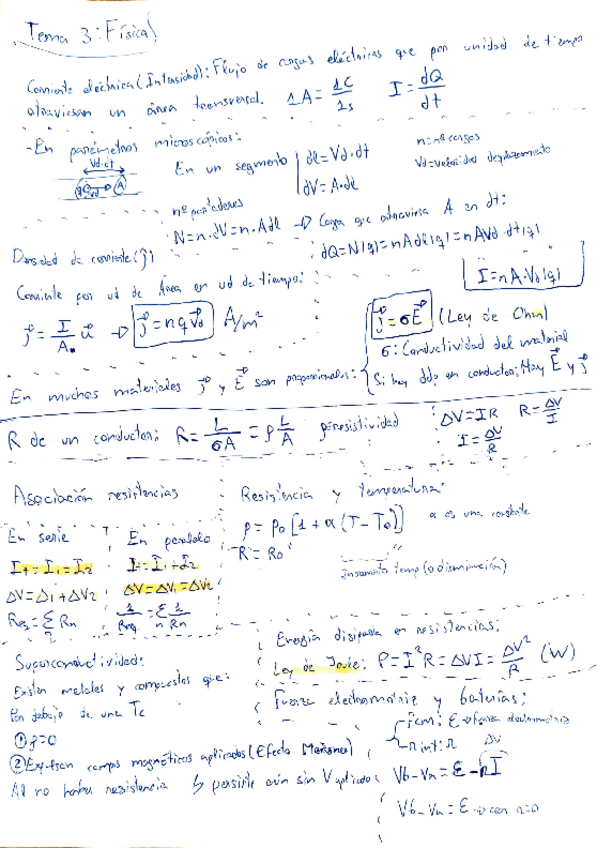 Tema 3: Física
Corriente eléctrica (Intensidad): Flujo de cargas eléctricas que por unidad de tiempo
atraviesan un área transversal. 1A = 1C/1s  I = dQ/dt
- En parámetros microscópicos:
Vd·dt
A
En un segmento | dl = Vd·dt
dV = A·dl
n = nº cargas
Vd = velocidad desplazamiento
nº portadores
N = n·dV = n·Adl → Carga que atraviesa A en dt:
dQ = N|q| = nAdl|q| = nAVd·dt|q|
I = nA·Vd|q|
Densidad de corriente (j)
Corriente por ud de Área en ud de tiempo:
j = I/A u → j = nqVd A/m²
En muchos materiales j y E son proporcionales:
j = σE (Ley de Ohm)
σ: Conductividad del material
Si hay ddp en conductor; Hay E y j
R de un conductor: R = L/σA = ρ L/A ρ: resistividad
ΔV = IR  R = ΔV/I
I = ΔV/R
Asociación resistencias
En serie
IT = I1 = I2
ΔV = Δ1 + ΔV2
Req = Σ Rn
n
En paralelo
I = I1 + I2
ΔV = ΔV1 = ΔV2
1/Req = Σ 1/Rn
n
Resistencia y temperatura:
ρ = ρ0 [1 + α (T - T0)] α es una constante
R = R0 "
incremento temp (o disminución)
Superconductividad:
Existen metales y compuestos que:
Por debajo de una Tc
① ρ=0
② Expulsan campos magnéticos aplicados (Efecto Meissner)
Al no haber resistencia ↳ persiste aún sin V aplicado
Energía disipada en resistencias:
Ley de Joule: P = I²R = ΔVI = ΔV²/R (W)
Fuerza electromotriz y baterías:
fem: ε → fuerza electromotriz
r int: r
ΔV
Vb - Va = ε - rI
Vb - Va = ε → con r=0